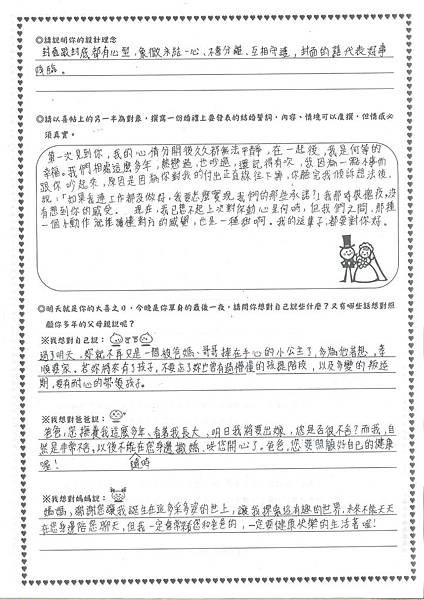 ◎請說明你的設計理念
封面跟封底都有心型，象徵永結一心、不離分離、互相守護，封面的鵲代表好事
降臨。
◎請以喜帖上的另一半為對象，撰寫一份婚禮上要發表的結婚誓詞，內容、情境可以虛擬，但情感必
須真實。
第一次見到你，我的心情分開後久久都無法平靜，在一起後，我是何等的
幸福。我們相處這麼多年，熱戀過，也吵過，還記得有次，我因為一點小事而
跟你吵起來，原因是因為你對我的付出正直線往下降，你聽完我傾訴想法後，
說：「如果我連工作都沒做好，我要怎麼實現我們的那些承諾？」我那時很懊悔，沒
有想到你的感受。現在，我已想不起上次對你動心是何時，但我們之間，那種
一個小動作就能讀懂對方的感覺，也是一種甜啊。我的這輩子，都要對你好。
◎明天就是你的大喜之日，今晚是你單身的最後一夜，請問你想對自己說些什麼？又有哪些話想對照
顧你多年的父母親說呢？
※我想對自己說：
過了明天，妳就不再只是一個被爸媽、哥哥捧在手心的小公主了，多為他著想，孝
順尊家。若妳將來有了孩子，不要忘了妳也曾有過懵懂的孩提階段，以及多變的叛逆
期，要有耐心的帶領孩子。
※我想對爸爸說：
老爸，您撫養我這麼多年、看著我長大，明日我將要出嫁，您是否很不捨？而我，自
然是非常不捨，以後不能在您身邊撒嬌、哄您開心了。爸爸，您要照顧好自己的健康
喔！
隨時
※我想對媽媽說：
媽媽，謝謝您讓我誕生在這多采多姿的世上，讓我探索這有趣的世界，未來不能天天
在您身邊陪您聊天，但我一定會常常看您和爸爸的，一定要健康快樂的生活著喔！